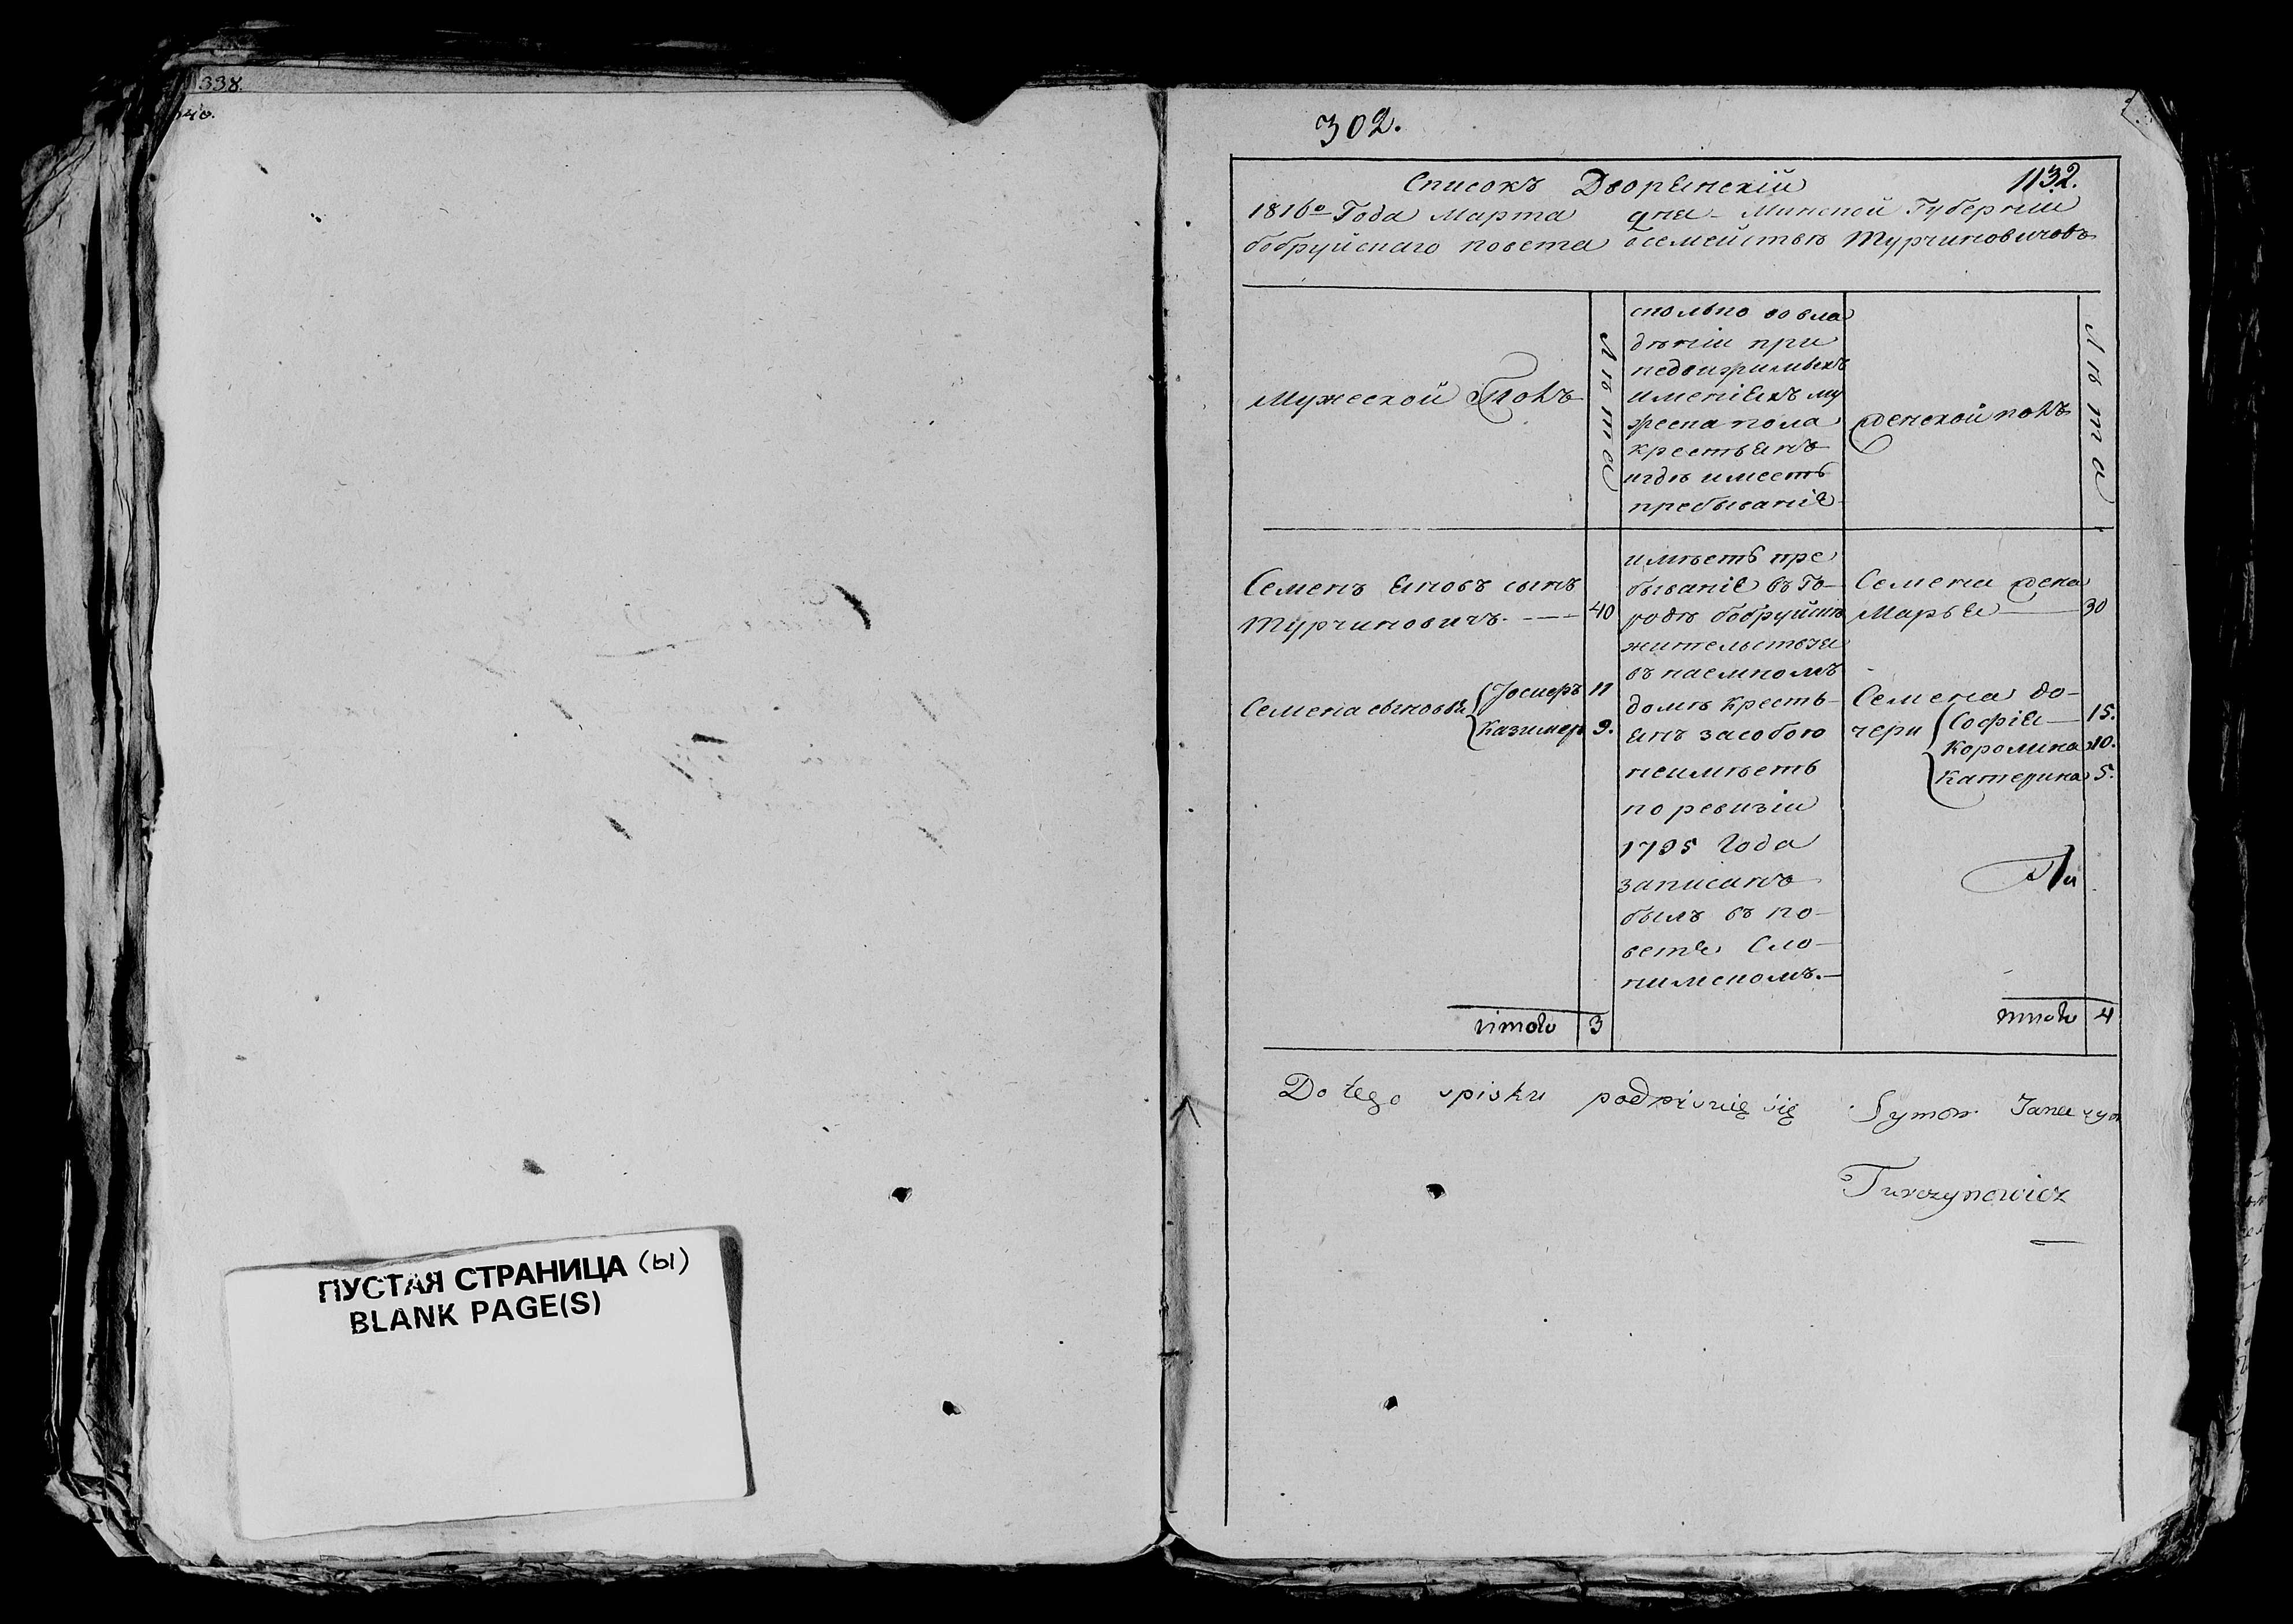 338.
302.
1132.
Списокъ Дворянскій
1816го Года Марта дня Минской Губерніи
бобруйскаго повета осемействѣ Турчиновичовъ
Мужеской Полъ
Лѣта
сколько вовла
дѣніи при
недвижимыхъ
именіяхъ му
жеска пола
крестьянъ
игдѣ имеетъ
пребываніе
женской полъ
Лѣта
Семенъ Яновъ сынъ
Турчиновичъ. — 40
Семена сыновья { Іосифъ 11
Казимер 9.
имѣетъ пре
бываніе въ Го-
родѣ бобруйскѣ
жительствуя
въ наемномъ
домѣ кресть-
янъ засобою
неимѣетъ
по ревизіи
1795 Года
записанъ
былъ въ по-
вете Сло-
нимскомъ.—
Семена жена
Марья — 30
Семена до-
чери { Софія — 15.
Королина 10.
Катерина 5.
итого 3
итого 4
Do tego spisku podpisuię się Symon Jana syn
Turczynowicz
ПУСТАЯ СТРАНИЦА (Ы)
BLANK PAGE(S)